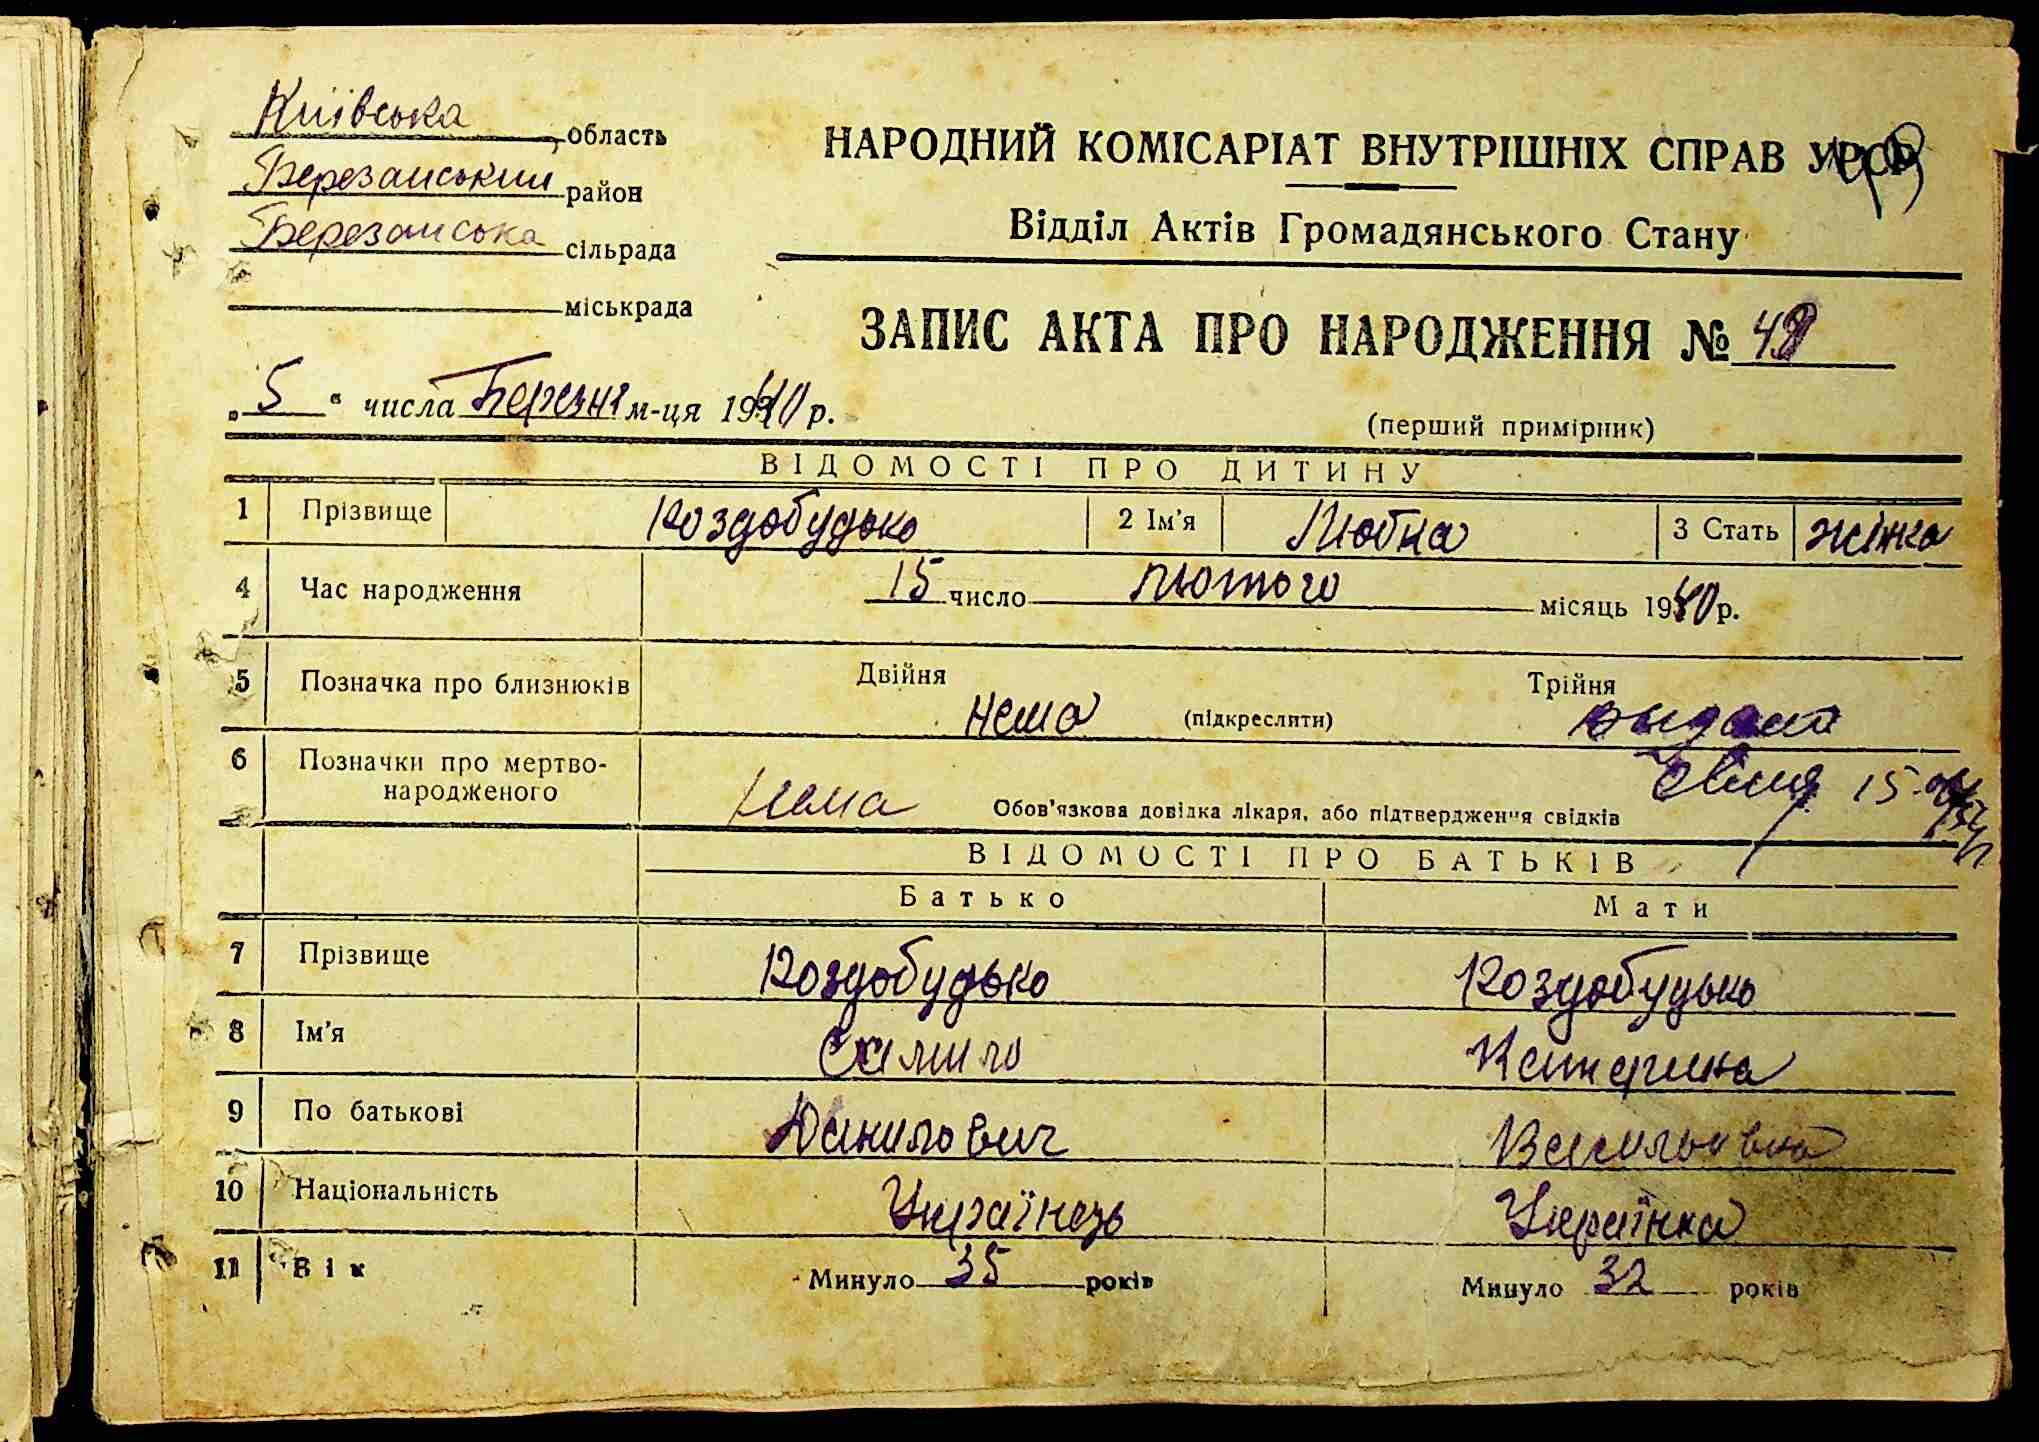 Київська область
Березанський район
Березанська сільрада
міськрада
НАРОДНИЙ КОМІСАРІАТ ВНУТРІШНІХ СПРАВ УРСР
Відділ Актів Громадянського Стану
ЗАПИС АКТА ПРО НАРОДЖЕННЯ №
„5“ числа Березня м-ця 1940 р.
(перший примірник)
ВІДОМОСТІ ПРО ДИТИНУ
1 Прізвище Роздобудько 2 Ім'я 3 Стать жінка
4 Час народження 15 число лютого місяць 1940 р.
5 Позначка про близнюків Двійня Трійня
нема (підкреслити)
6 Позначки про мертво-
народженого нема Обов'язкова довідка лікаря, або підтвердження свідків
15
ВІДОМОСТІ ПРО БАТЬКІВ
Батько Мати
7 Прізвище Роздобудько Роздобудько
8 Ім'я Катерина
9 По батькові Данилович Васильовна
10 Національність Українець Українка
11 Вік Минуло 35 років Минуло 32 років